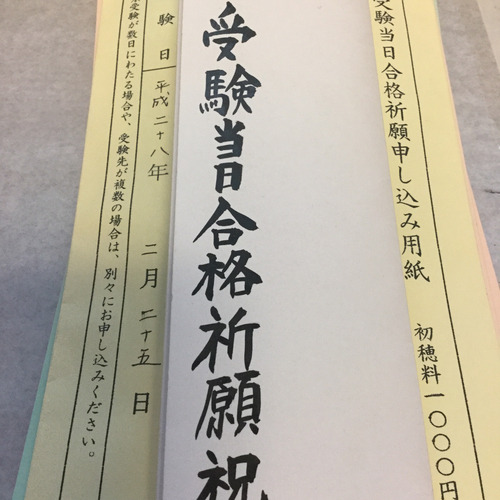 受験当日合格祈願申し込み用紙
初穂料一〇〇〇円
受験当日合格祈願祝
験日 平成二十八年 二月二十五日
受験が数日にわたる場合や、受験先が複数の場合は、別々にお申し込みください。